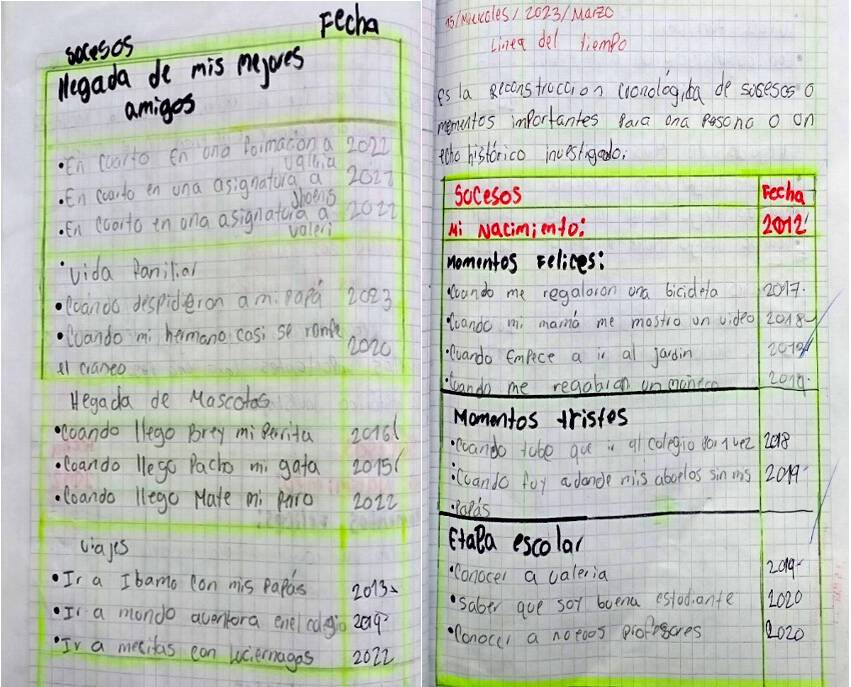 Fecha
sucesos
llegada de mis mejores
amigos
•En cuarto en una formacion a 2022
valeria
•En cuarto en una asignatura a 2022
•En cuarto en una asignatura a 2022
valeri
•vida familiar
•Cuando despidieron a mi papá 2023
•Cuando mi hermano casi se rompe
el craneo 2020
llegada de Mascotas
•Cuando llego Brey mi perrita 2016
•Cuando llego Pacho mi gata 2015
•Cuando llego Mate mi perro 2022
viajes
•Ir a Ibamo con mis papás 2013
•Ir a mundo aventura en el colegio 2019
•Ir a mesitas con luciernagas 2022
15/Miercoles/2023/Marzo
Linea del tiempo
es la reconstruccion cronológica de sucesos o
momentos importantes para una persona o un
echo histórico investigado.
Sucesos Fecha
Mi Nacimiento: 2012
Momentos Felices:
•Cuando me regalaron una bicicleta 2017
•Cuando mi mamá me mostro un video 2018
•Cuando Empece a ir al jardin
•Cuando me regalaron un muñeco 2019
Momentos tristes
•Cuando tube que ir al colegio por 1 vez 2018
•Cuando fuy a donde mis abuelos sin mis 2019
•papás
Etapa escolar
•Conocer a valeria 2019
•Saber que soy buena estudiante 2020
•Conocer a nuevos profesores 2020